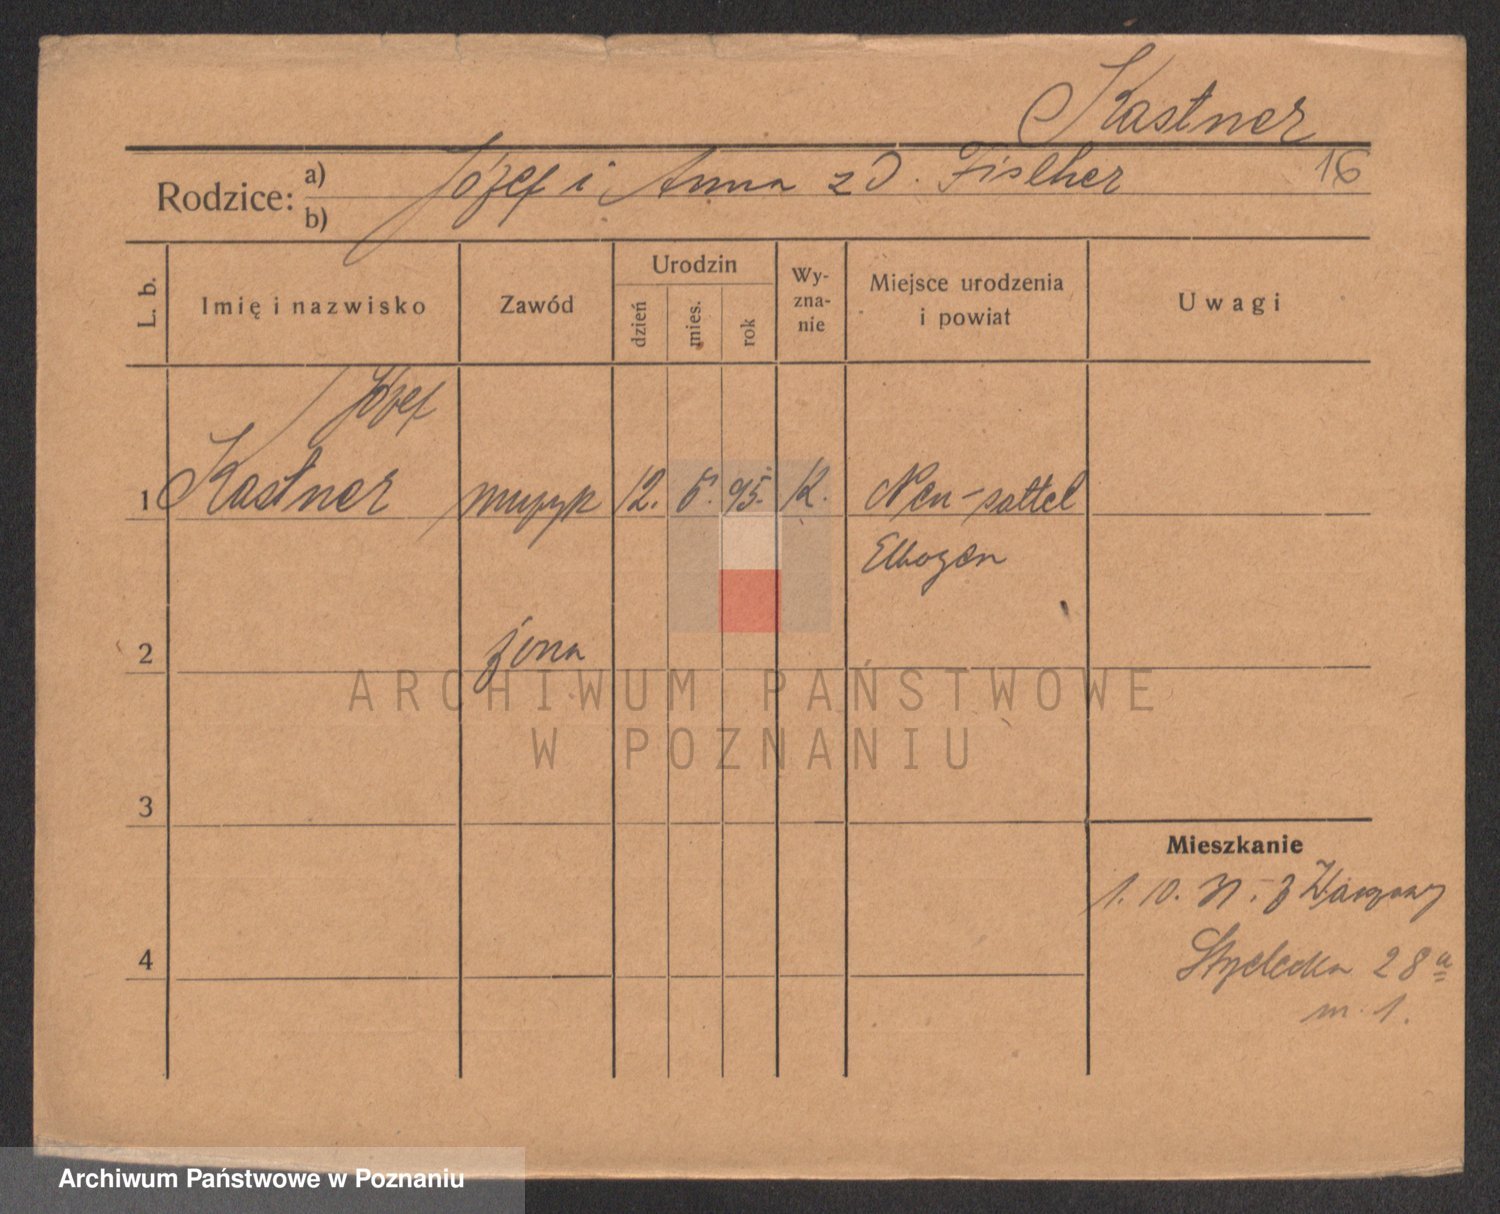 Kastner
Rodzice: a) Józef i Anna z D. Fischer 16
b)
L. b. Imię i nazwisko Zawód Urodzin dzień mies. rok Wy-zna-nie Miejsce urodzenia i powiat Uwagi
Józef
1 Kastner muzyk 12. 5. 95. K. Neu-sattel
Elbogen
2 żona
3
Mieszkanie
1. 10. 31. z Warszawy
4 28a
m. 1.
ARCHIWUM PAŃSTWOWE
W POZNANIU
Archiwum Państwowe w Poznaniu